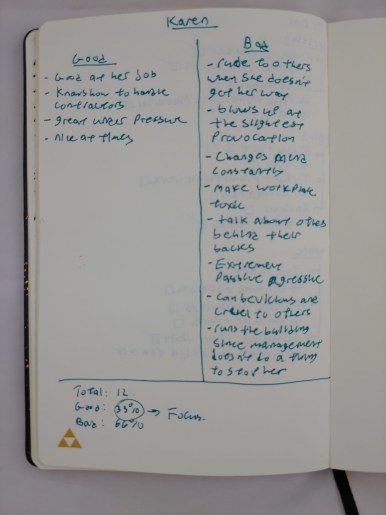 Karen
Good
- Good at her job
- Knows how to handle
contractors
- great under Pressure
- nice at times
Bad
- rude to others
when she doesn't
get her way
- blows up at
the slightest
Provocation
- Changes mind
constantly
- make workplace
toxic
- talk about others
behind their
backs
- Extremely
Passive agressive
- Can be vicious and
cruel to others
- runs the building
since management
doesn't do a thing
to stop her
Total: 12
Good: 33% → Focus.
Bad: 66%